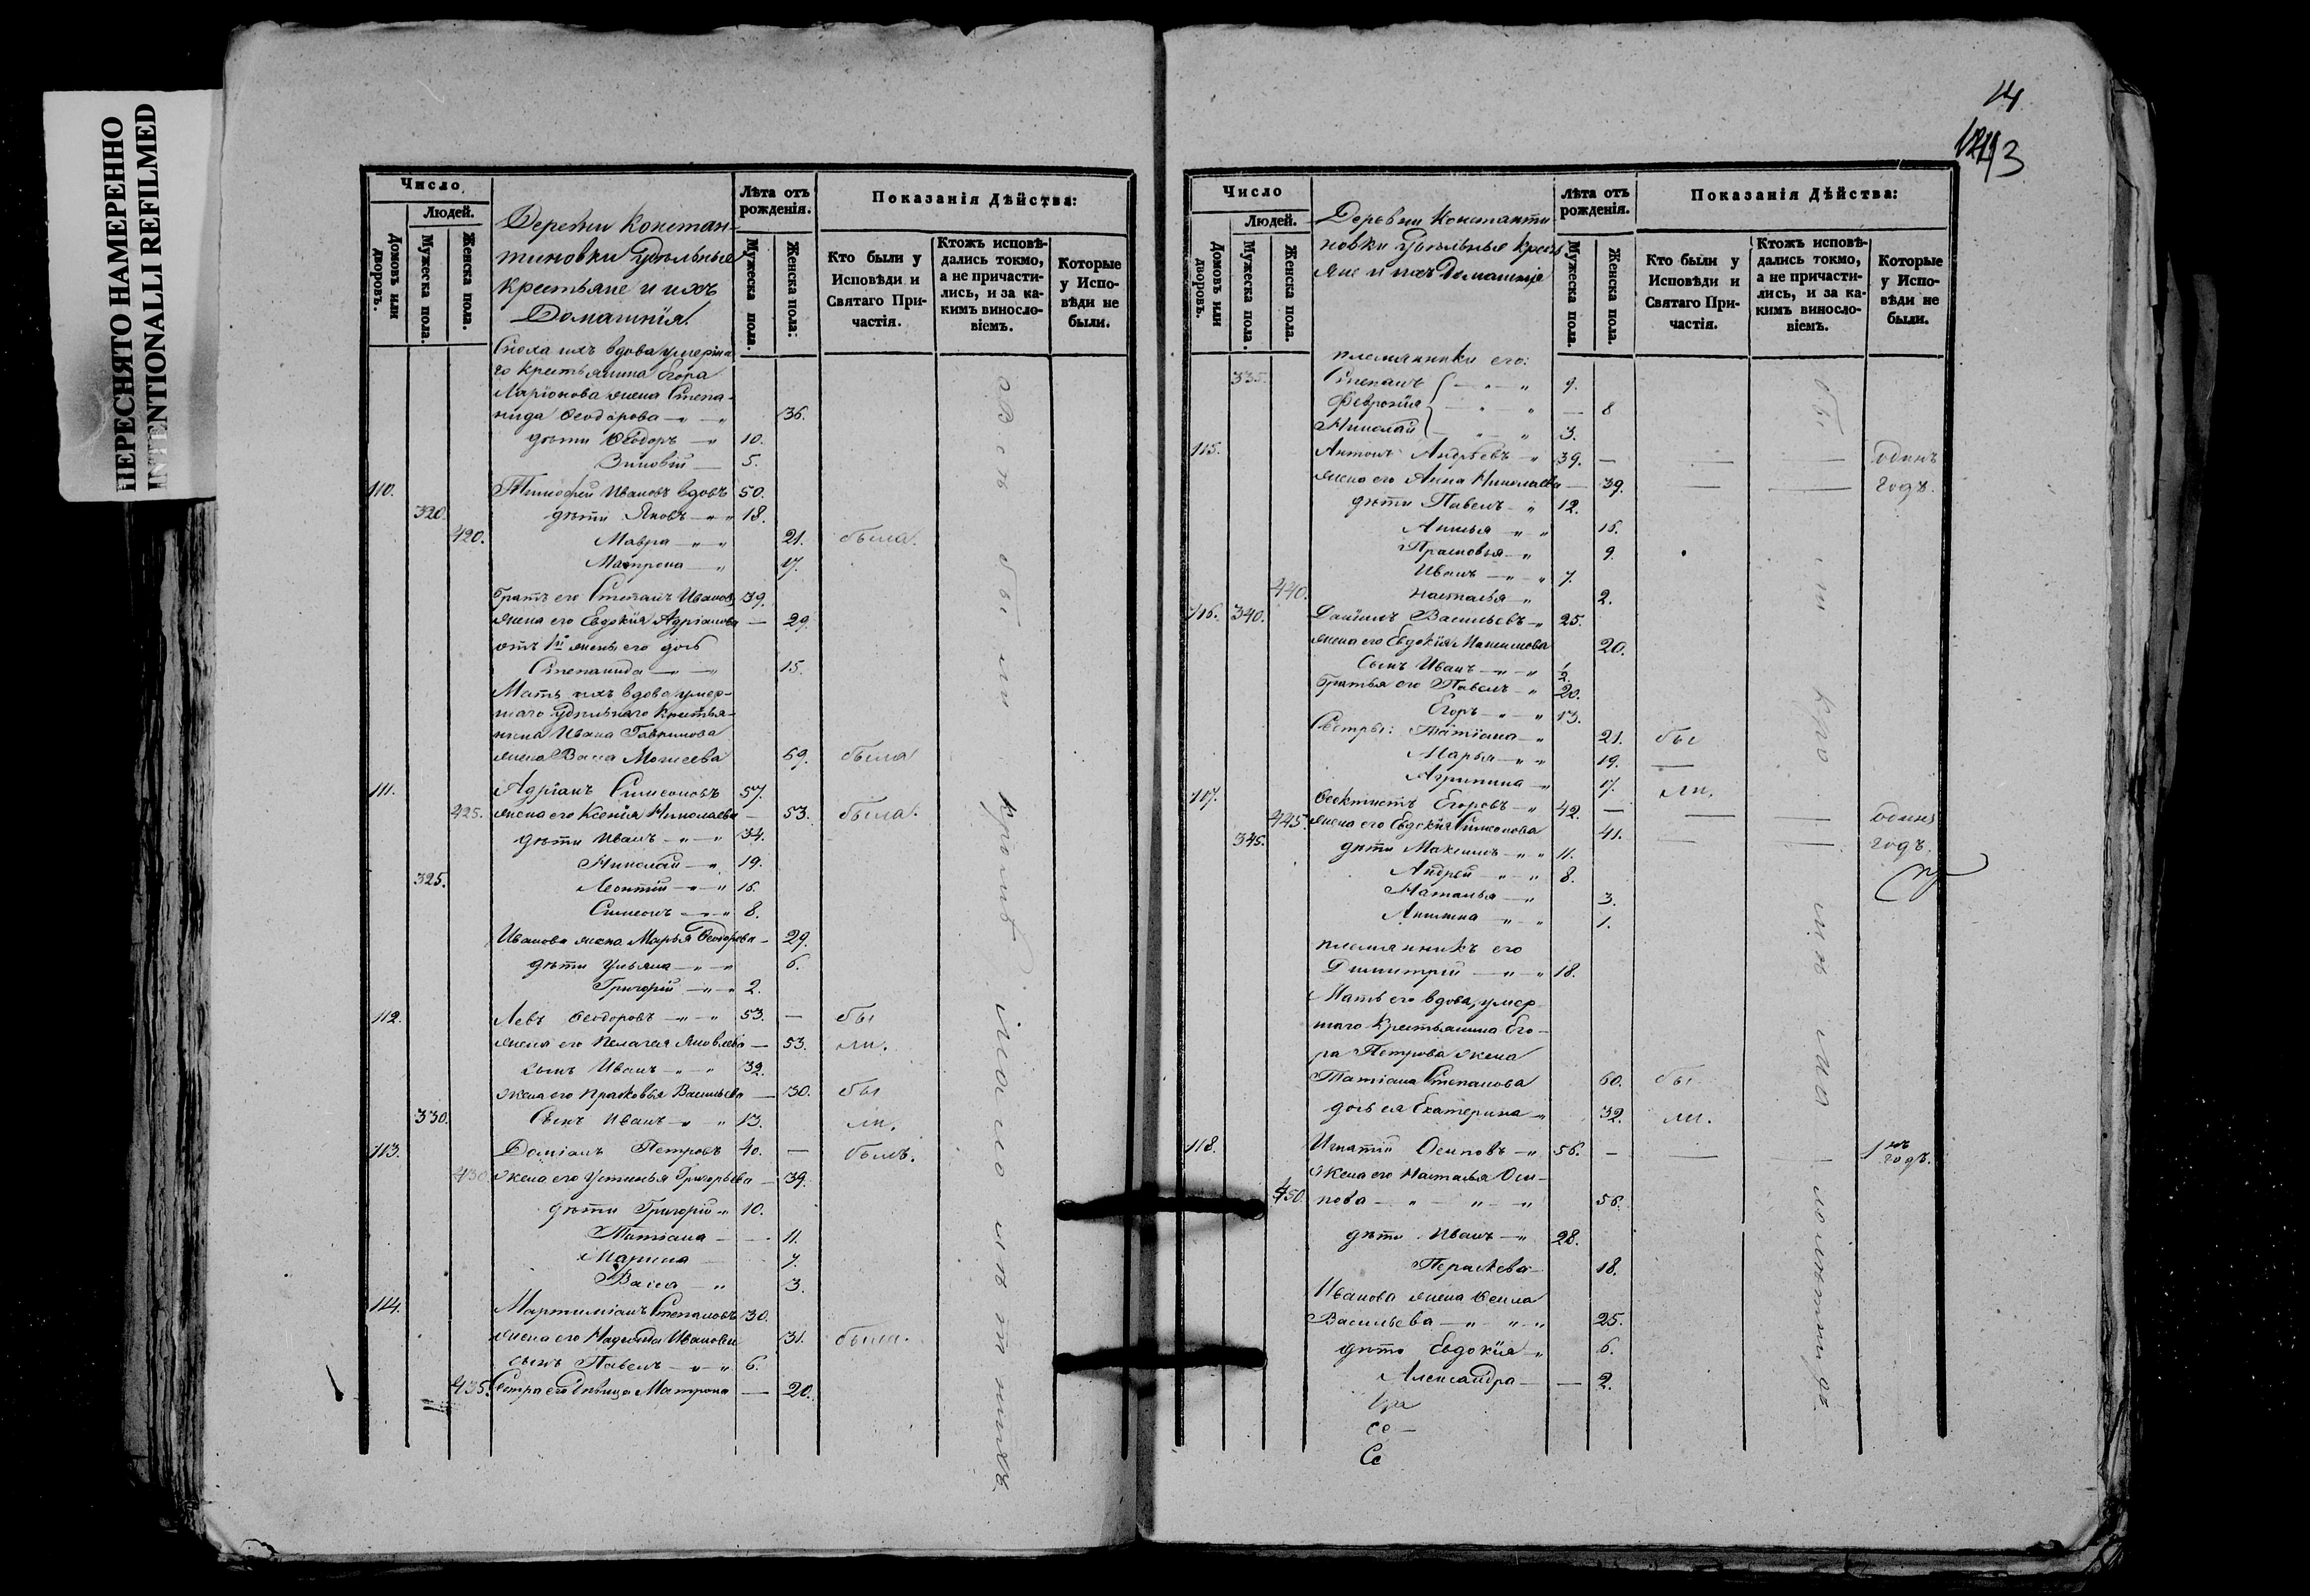 ПЕРЕСНЯТО НАМЕРЕННО
INTENTIONALLI REFILMED
Число
Людей.
Домовъ или дворовъ.
Мужеска пола.
Женска пола.
Деревни Констан-
тиновки Удѣльные
крестьяне и ихъ
Домашнія.
Лѣта отъ рожденія.
Мужеска пола.
Женска пола:
Показанія Дѣйства:
Кто были у Исповѣди и Святаго При-частія.
Ктожъ исповѣ-дались токмо, а не причасти-лись, и за ка-кимъ винослo-віемъ.
Которые у Испо-вѣди не были.
Сноха ихъ вдова умерша
го крестьянина Егора
Ларіонова жена Степа-
нида Ѳеодорова 36.
дѣти Ѳеодоръ 10.
Зиновій 5.
110. Тимоѳей Ивановъ вдовъ 50.
320. дѣти Яковъ 18.
420. Мавра 21. была.
Матрона 17.
Братъ его Степанъ Ивановъ 39.
жена его Евдокія Адріанова 29.
отъ 1й жены его дочь
Степанида 15.
Мать ихъ вдова умер-
шаго удѣльнаго крестья-
нина Ивана
жена Васса Моисеева 69. была
111. Адріанъ Симеоновъ 57.
425. жена его Ксенія Николаева 53. была.
дѣти Иванъ 34.
Николай 19.
325. Леонтій 16.
Симеонъ 8.
Иванова жена Марья Ѳеодорова 29.
дѣти Ульяна 6.
Григорій 2.
112. Левъ Ѳеодоровъ 53. — бы
жена его Пелагея Яковлева 53. ли.
сынъ Иванъ 32.
жена его Прасковья Васильева 30. бы
330. Сынъ Иванъ 13. ли.
113. Даміанъ Петровъ 40. — былъ.
430. Жена его Устинья Григорьева 39.
дѣти Григорій 10.
Татіана 11.
Марина 7.
Васса 3.
114. Мартиніанъ Степановъ 30.
жена его Надежда Иванова 31. была.
сынъ Павелъ 6.
435. Сестра его дѣвица Матрона 20.
14
3
Число
Людей.
Домовъ или дворовъ.
Мужеска пола.
Женска пола.
Деревни Константи
новки Удѣльныя крест
яне и ихъ Домашніе
Лѣта отъ рожденія.
Мужеска пола.
Женска пола.
Показанія Дѣйства:
Кто были у Исповѣди и Святаго При-частія.
Ктожъ исповѣ-дались токмо, а не причасти-лись, и за ка-кимъ винослo-віемъ.
Которые у Испо-вѣди не были.
племянники его:
335. Степанъ 9.
Февронія — 8
Николай 3.
115. Антонъ Андреевъ 39. — одинъ
жена его Анна Николаева 39. годъ.
дѣти Павелъ 12.
Анисья 16.
Прасковья 9.
Иванъ 7.
440. Настасья 2.
116. 340. Даніилъ Васильевъ 25.
жена его Евдокія Максимова 20.
Сынъ Иванъ 1/2.
Братья его Павелъ 20.
Егоръ 13.
Сестры: Татіана 21. бы
Марья 19. —
Агрипина 17. ли.
117. Ѳеоктистъ Егоровъ 42. — одинъ
445. жена его Евдокія Симеонова 41. годъ.
345. дѣти Максимъ 11.
Андрей 8.
Наталья 3.
1.
племянникъ его
Димитрій 18.
Мать его вдова, умер
шаго крестьянина Его-
ра Петрова жена
Татіана Степанова 60. бы
дочь ея Екатерина 32. ли.
118. Игнатій Осиповъ 56. — 1 нъ годъ.
Жена его Настасья Оси-
450. пова 56.
дѣти Иванъ 28.
Параскева 18.
Иванова жена
Васильева 25.
дѣти Евдокія 6.
Александра — 2.
Се